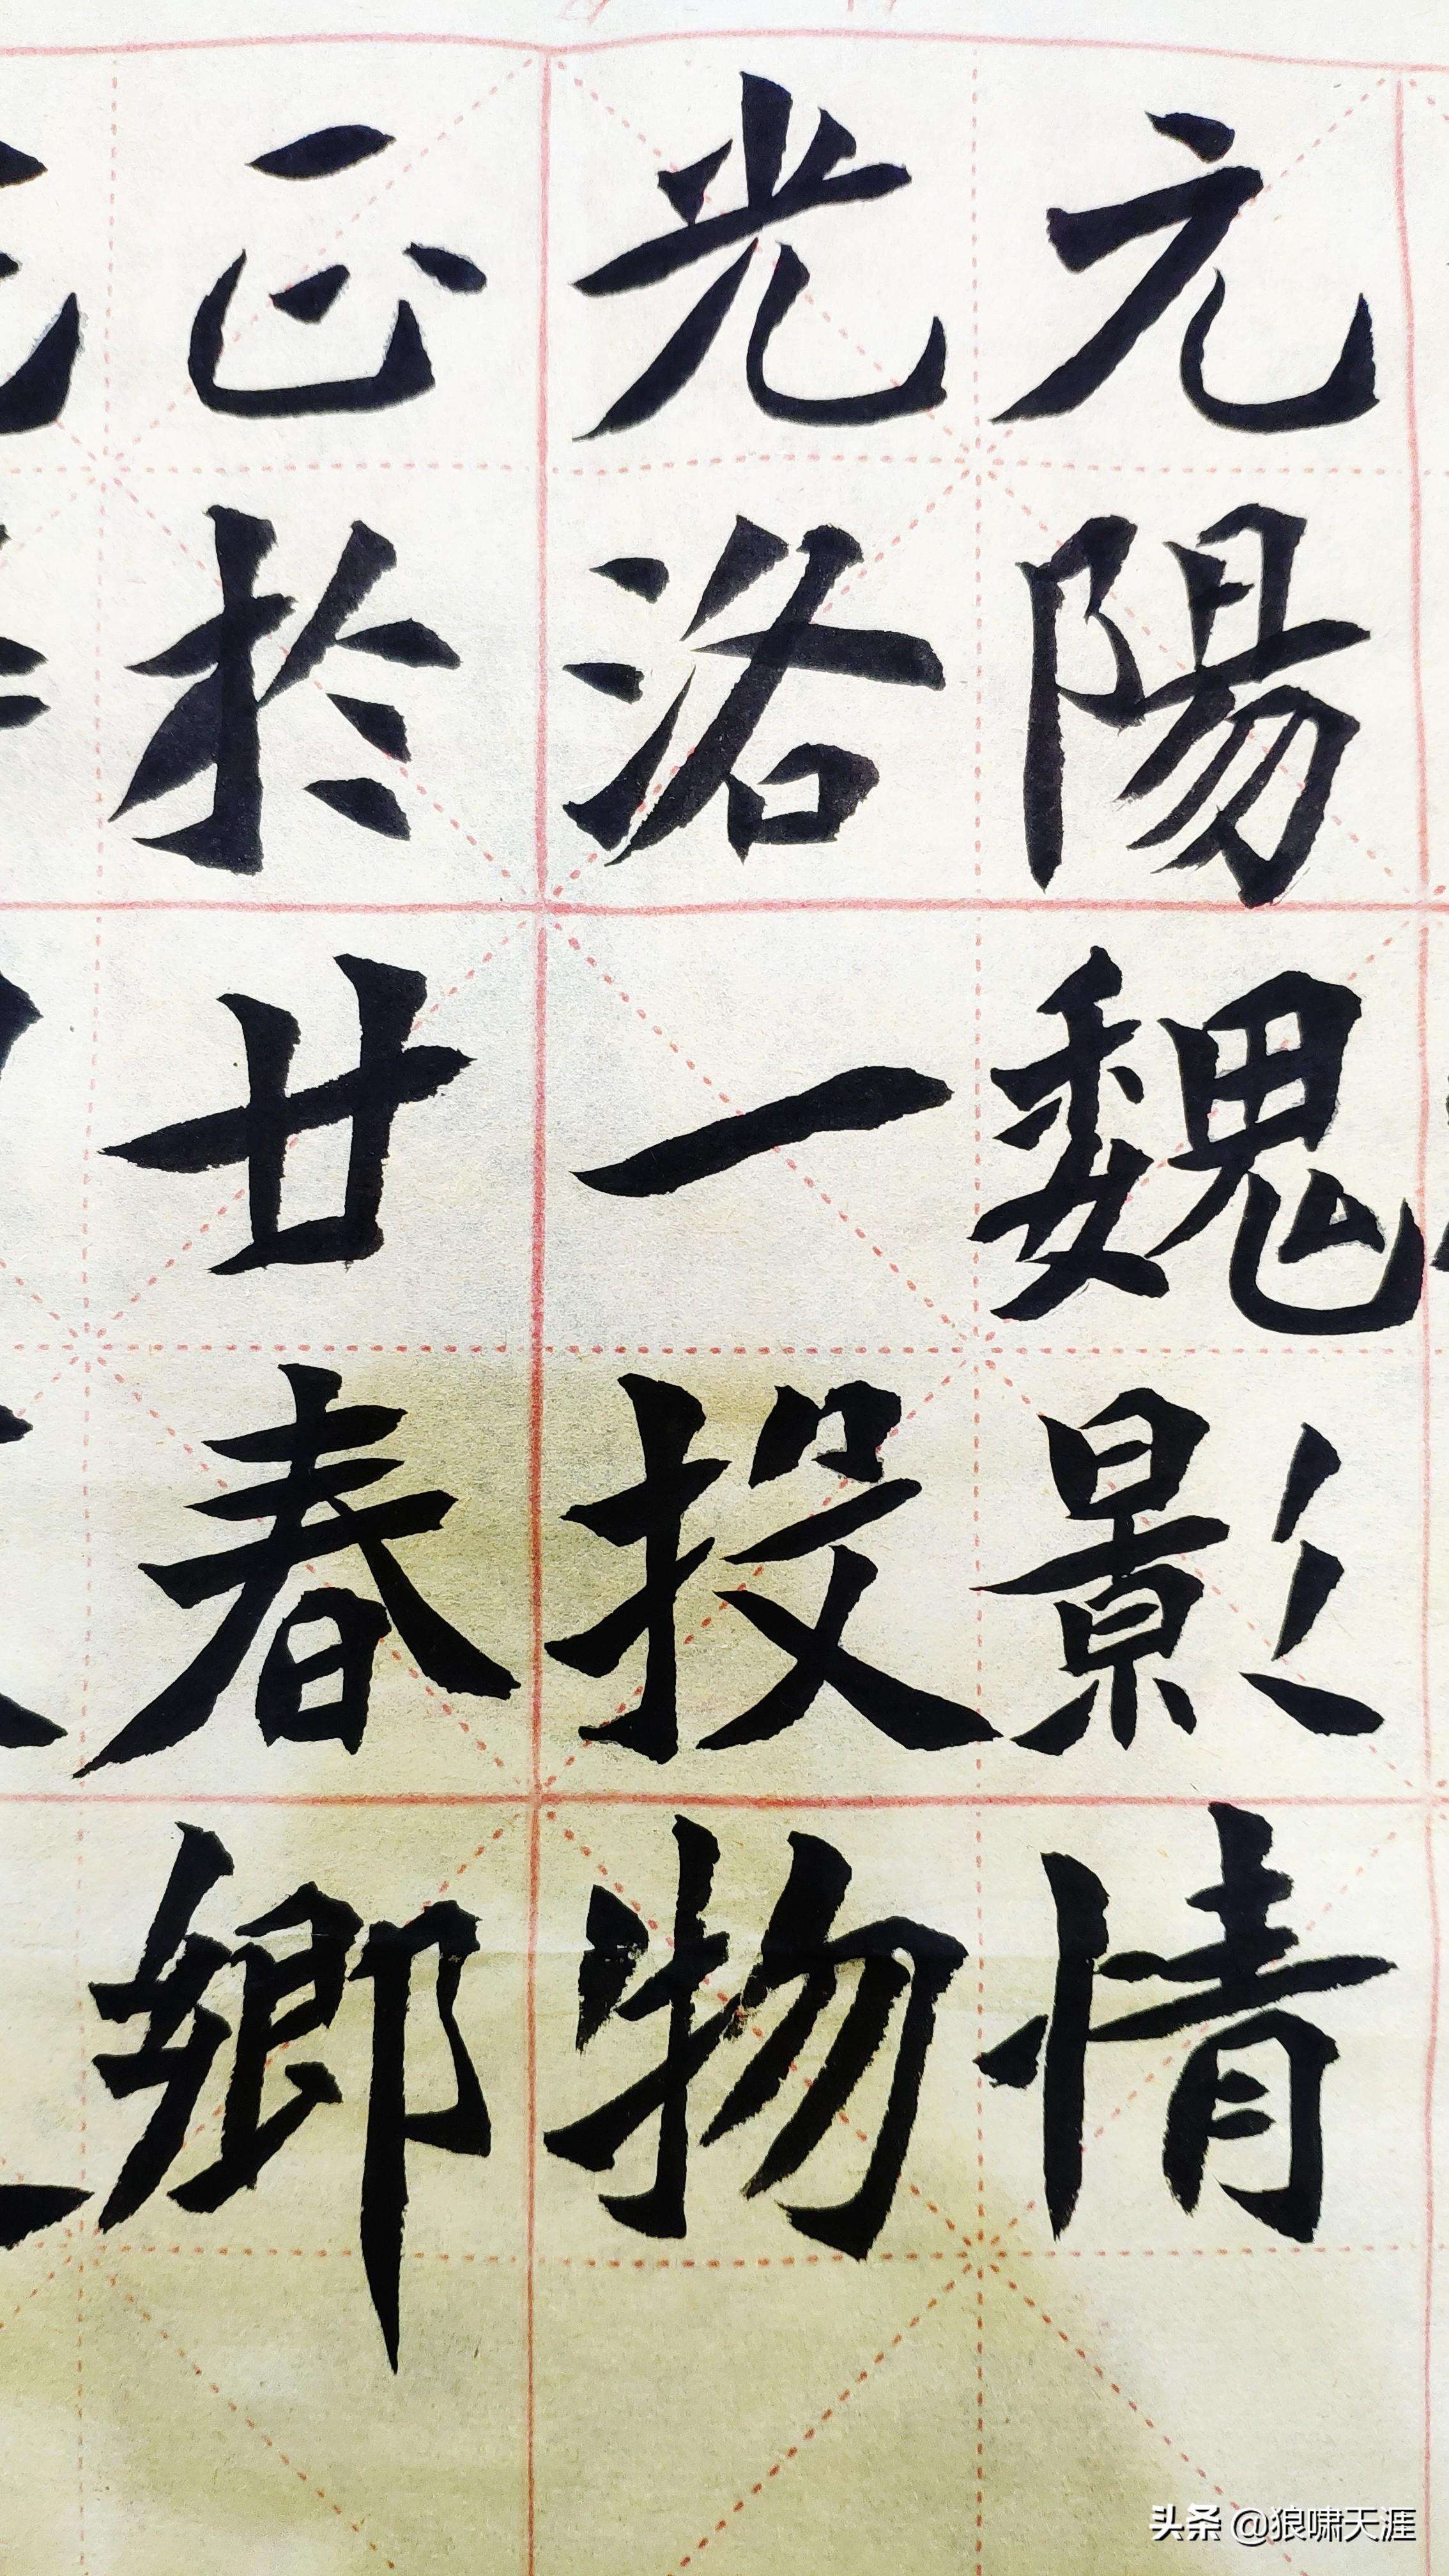 元陽魏影情
光洛一投物
正於廿春鄉
头条 @狼啸天涯